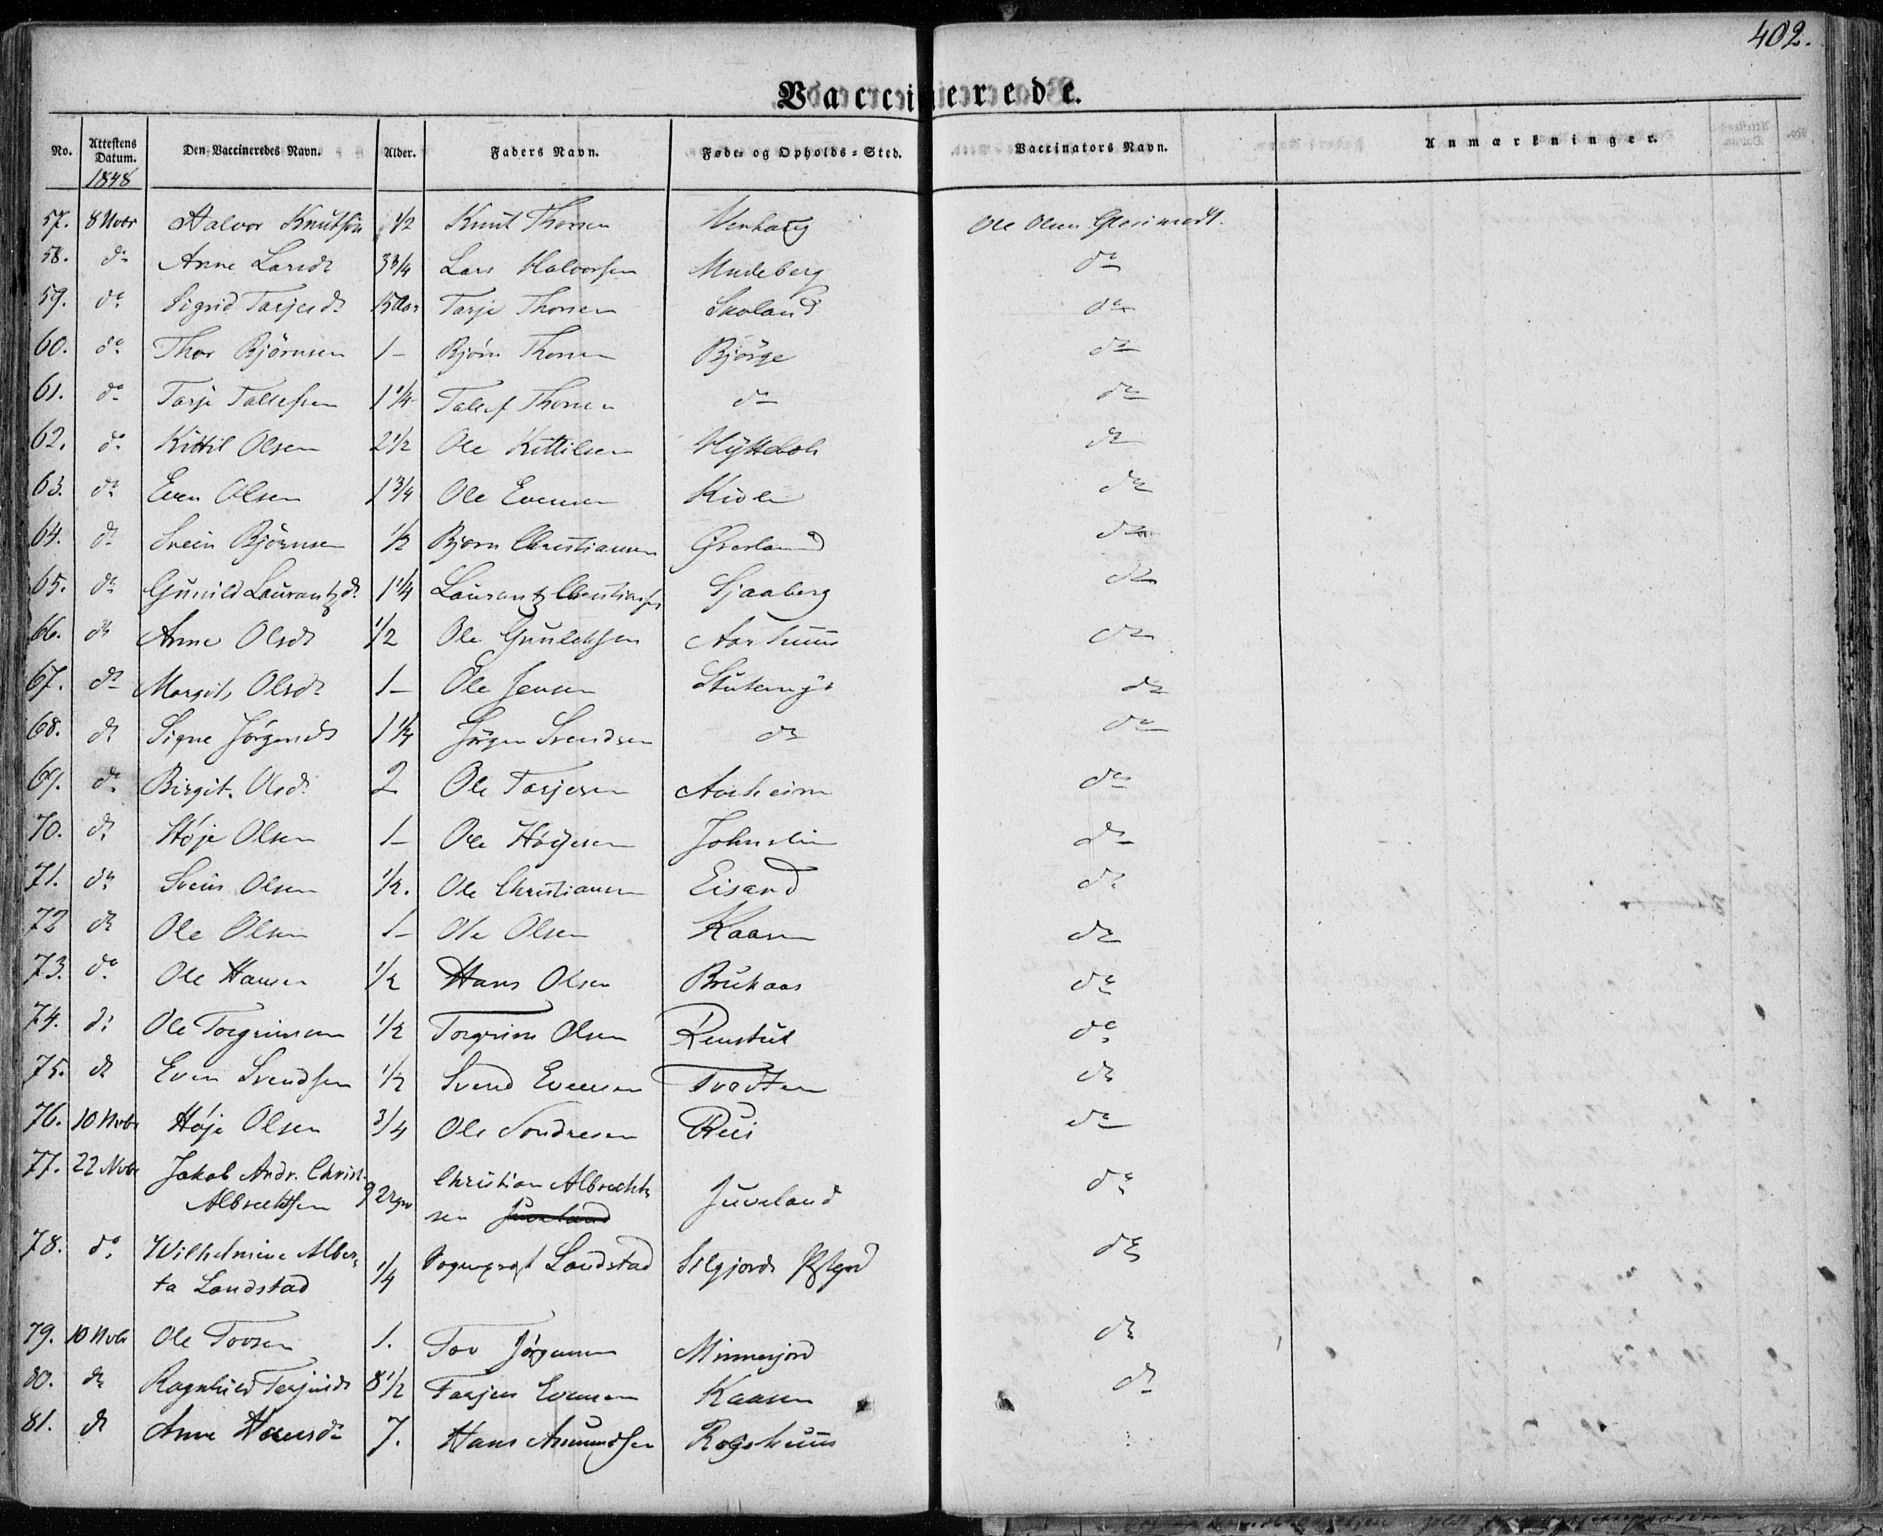 402.
Vaccinerede.
No. Attestens Datum. Den Vaccineredes Navn. Alder. Faders Navn. Føde- og Opholds-Sted. Vaccinators Navn. Anmærkninger.
1848
57. 8 Novbr Halvor Knutsen 1/2 Knut Thorsen Venhaug Ole Olsen
58. do Anne Larsdr 3 3/4 Lars Halvorsen Mudeberg do
59. do Sigrid Tarjesdr Tarje Thorsen Skoland do
60. do Thor Bjørnsen 1- Bjørn Thorsen Bjørge do
61. do Tarje Tallefsen 1 1/4 Tallef Thorsen do do
62. do Kittil Olsen 2 1/2 Ole Kittilsen do
63. do Even Olsen 1 3/4 Ole Evensen do
64. do Svein Bjørnsen 1/2 Bjørn Christiansen Øverland do
65. do Gunild Laurantzdr 1 1/4 Laurantz Christians Sjaaberg do
66. do Anne Olsdr 1/2 Ole Gunleksen Aarhuus do
67. do Margit Olsdr 1- Ole Jensen do
68. do Signe Jørgensdr Jørgen Svendsen do do
69. do Birgit Olsdr 2 Ole Tarjesen do
70. do Høje Olsen 1- Ole Høijesen Johnslin do
71. do Svein Olsen 1/2. Ole Christiansen Eisand do
72 do Ole Olsen 1- Ole Olsen Kaasen do
73. do Ole Hansen 1/2 Hans Olsen Brukaas do
74. do Ole Torgrimsen 1/2 Torgrim Olsen do
75. do Even Svendsen 1/2 Svend Evensen Tvedten do
76. 10 Novbr Høje Olsen 3/4 Ole Sondresen Rui do
77. 22 Novbr Jakob Andr. Christ. Christian Albrecht- Juveland do
Albrecktsen 9 sen Juveland
78. do Wilhelmine Alber- 1/4 Landstad do
ta Landstad
79. 10 Novbr Ole Tovsen 1. Tov Jørgensen Minnesjord do
80. do Ragnhild Tarjeisdr 8 1/2 Tarjei Evensen Kaasen do
81. do Anne Hansdr 7. Hans Amundsen Rogshuus